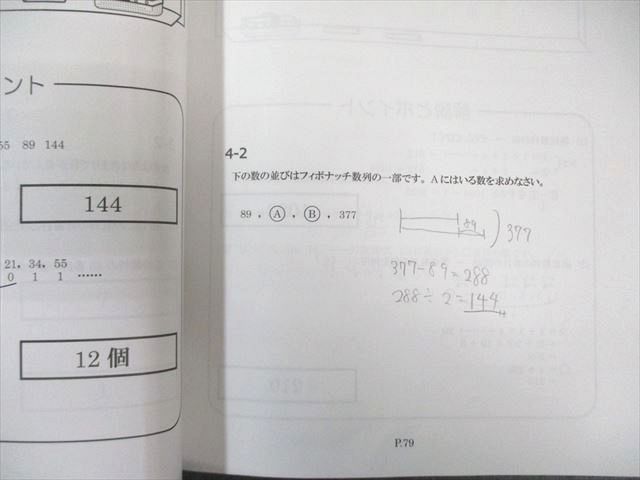 ント
55 89 144
144
21, 34, 55
0 1 1 ……
12 個
4-2
下の数の並びはフィボナッチ数列の一部です。Aにはいる数を求めなさい。
89 , Ⓐ , Ⓑ , 377
89
377
377-89=288
288÷2=144
P.79